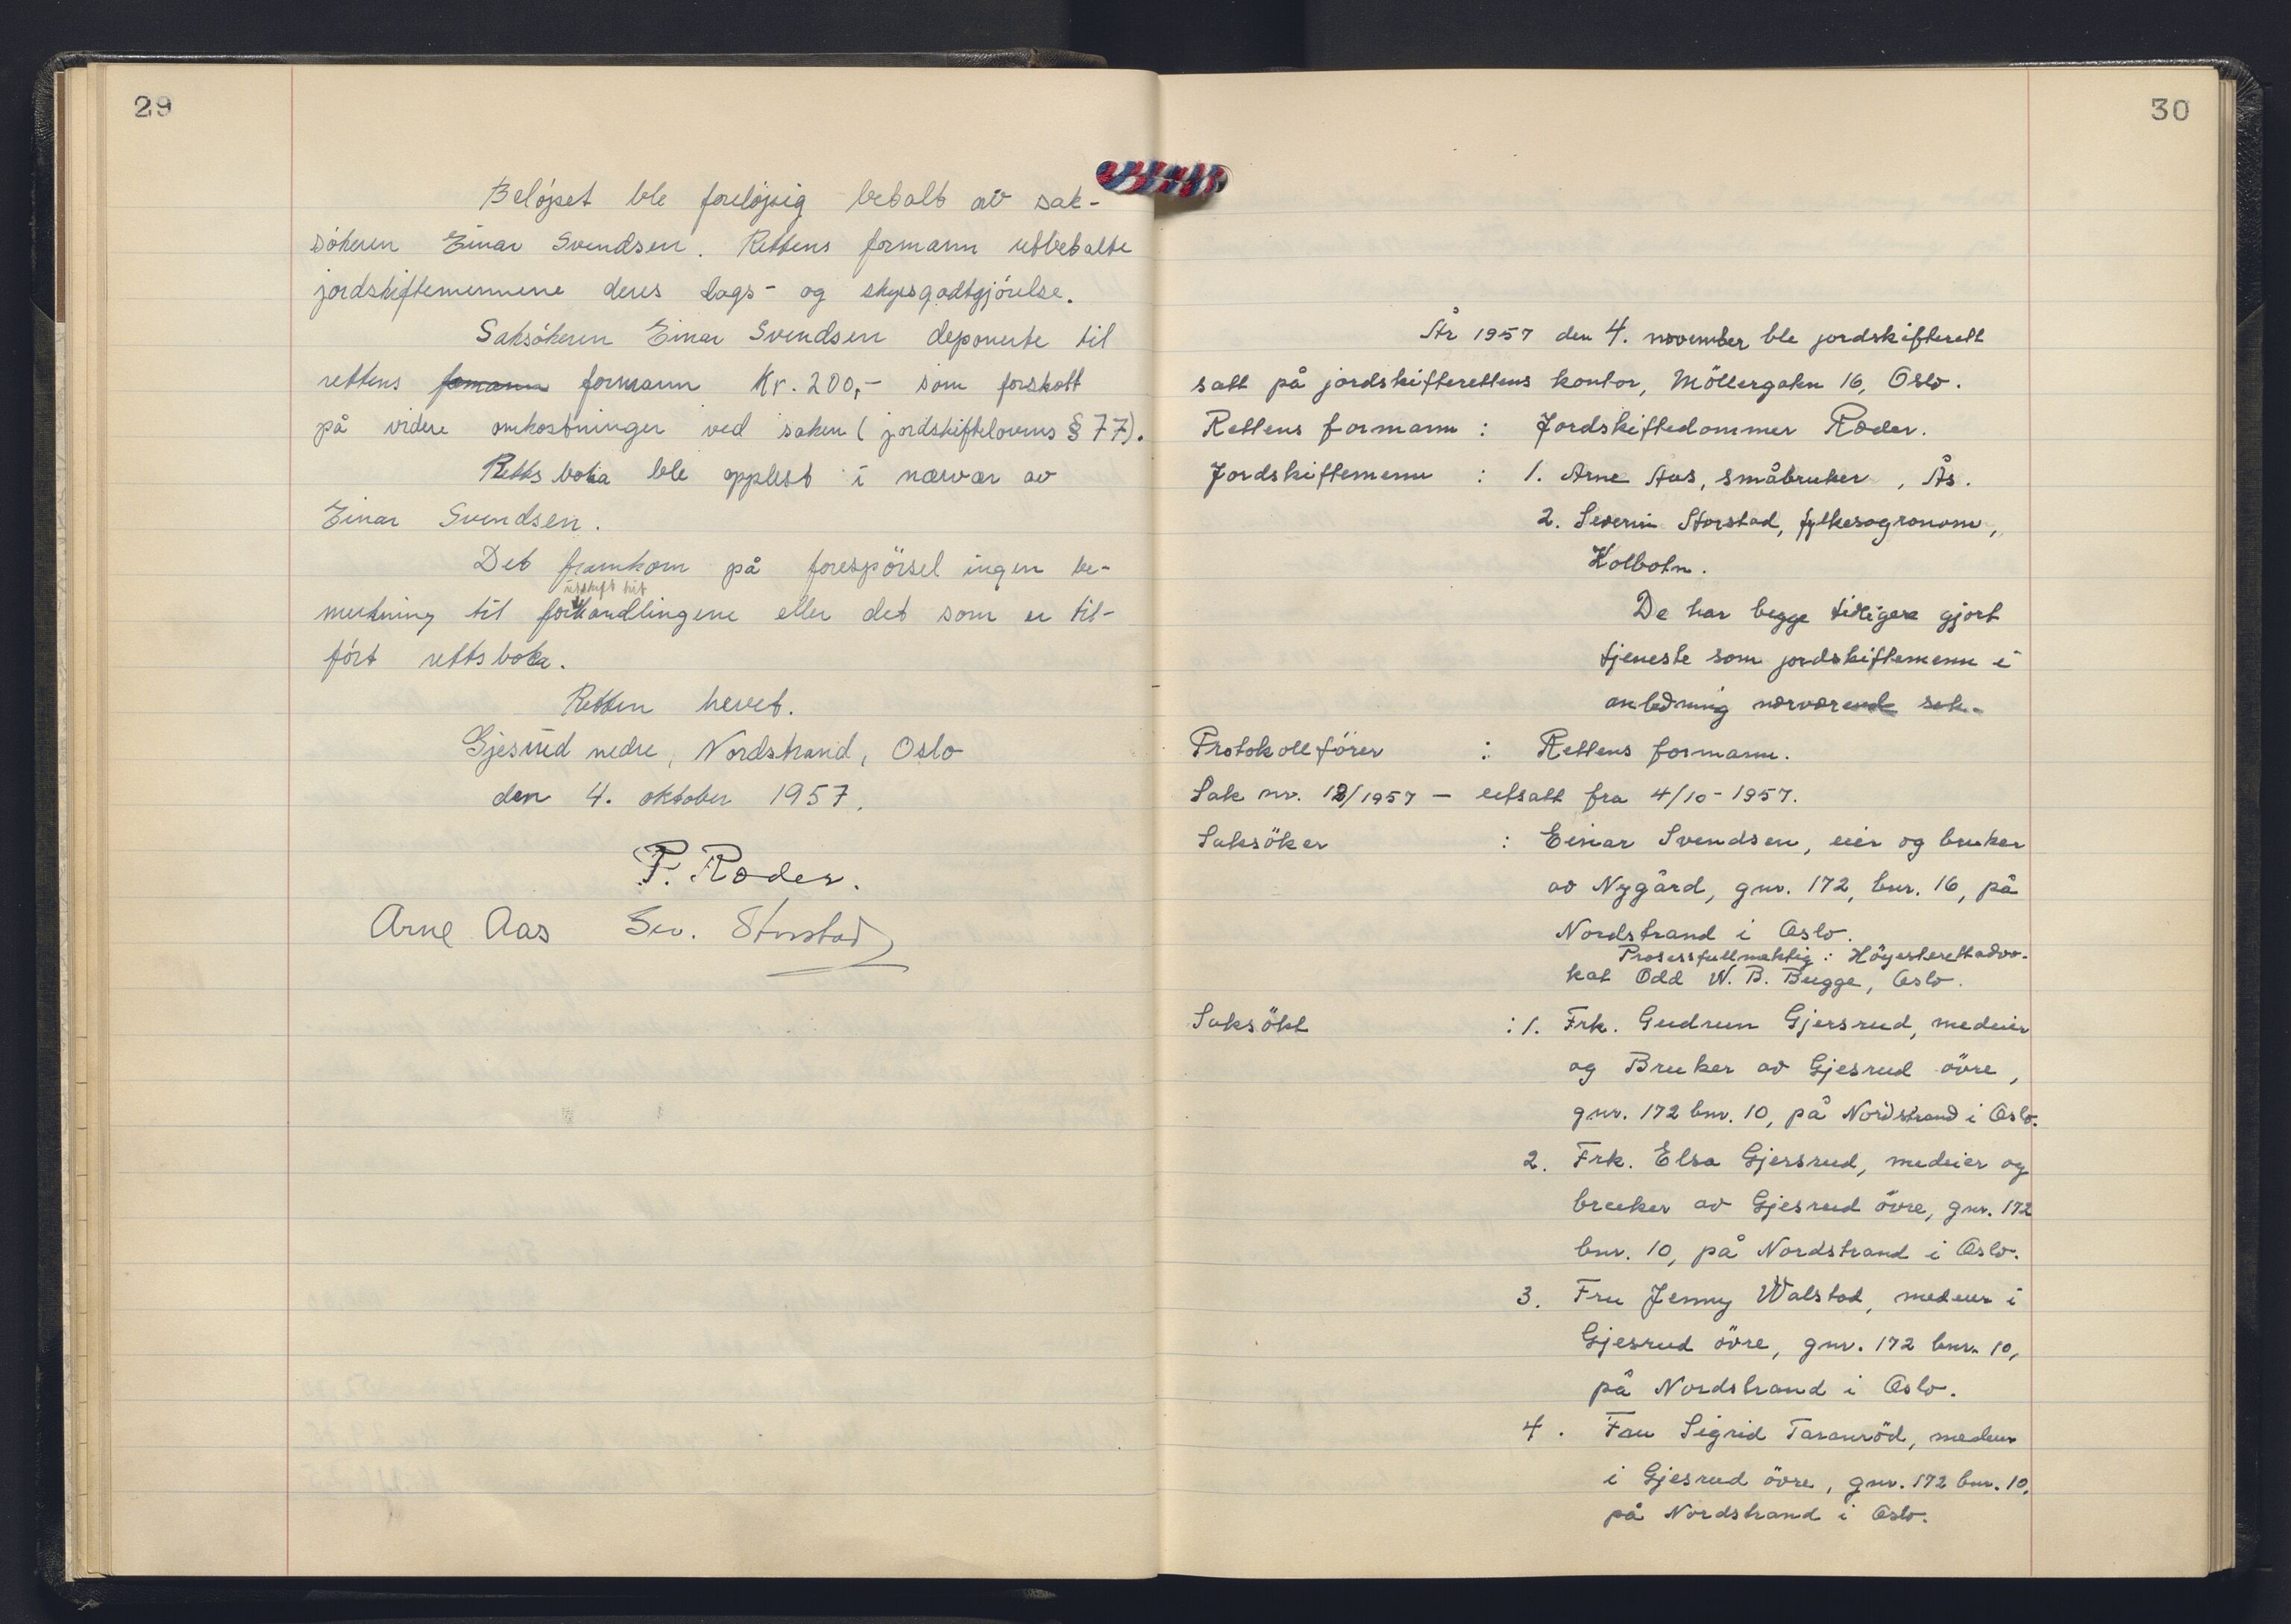 29
Beløpet ble foreløpig betalt av sak-
søkeren Einar Svendsen. Rettens formann utbetalte
jordskiftemennene deres dags- og skyssgodtgjørelse.
Saksøkeren Einar Svendsen deponerte til
rettens fomann formann Kr. 200,- som forskott
på videre omkostninger ved saken (jordskiftelovens § 77).
Rettsboka ble opplest i nærvær av
Einar Svendsen.
Det framkom på forespørsel ingen be-
utskift hit
merkning til forhandlingene eller det som er til-
ført rettsboka.
Retten hevet.
Gjesrud nedre, Nordstrand, Oslo
den 4. oktober 1957.
P. Røder.
Arne Aas Sev. Storstad
30
År 1957 den 4. november ble jordskifterett
satt på jordskifterettens kontor, Möllergaten 16, Oslo.
Rettens formann : Jordskiftedommer Røder.
Jordskiftemenn : 1. Arne Aas, småbruker, Ås.
2. Severin Storstad, fylkesagronom,
Kolbotn.
De har begge tidligere gjort
tjeneste som jordskiftemenn i
anledning nærværende sak.
Protokollförer : Rettens formann.
Sak nr. 12/1957 – utsatt fra 4/10-1957.
Saksöker : Einar Svendsen, eier og bruker
av Nygård, gnr. 172, bnr. 16, på
Nordstrand i Oslo.
Prosessfullmektig: Höyesterettsadvo-
kat Odd W. B. Bugge, Oslo.
Saksökt : 1. Frk. Gudrun Gjersrud, medeier
og Bruker av Gjesrud övre,
gnr. 172 bnr. 10, på Nordstrand i Oslo.
2. Frk. Elsa Gjersrud, medeier og
bruker av Gjesrud övre, gnr. 172
bnr. 10, på Nordstrand i Oslo.
3. Fru Jenny Walstad, medeier i
Gjesrud övre, gnr. 172 bnr. 10,
på Nordstrand i Oslo.
4. Fru Sigrid Taranröd, medeier
i Gjesrud övre, gnr. 172 bnr. 10,
på Nordstrand i Oslo.